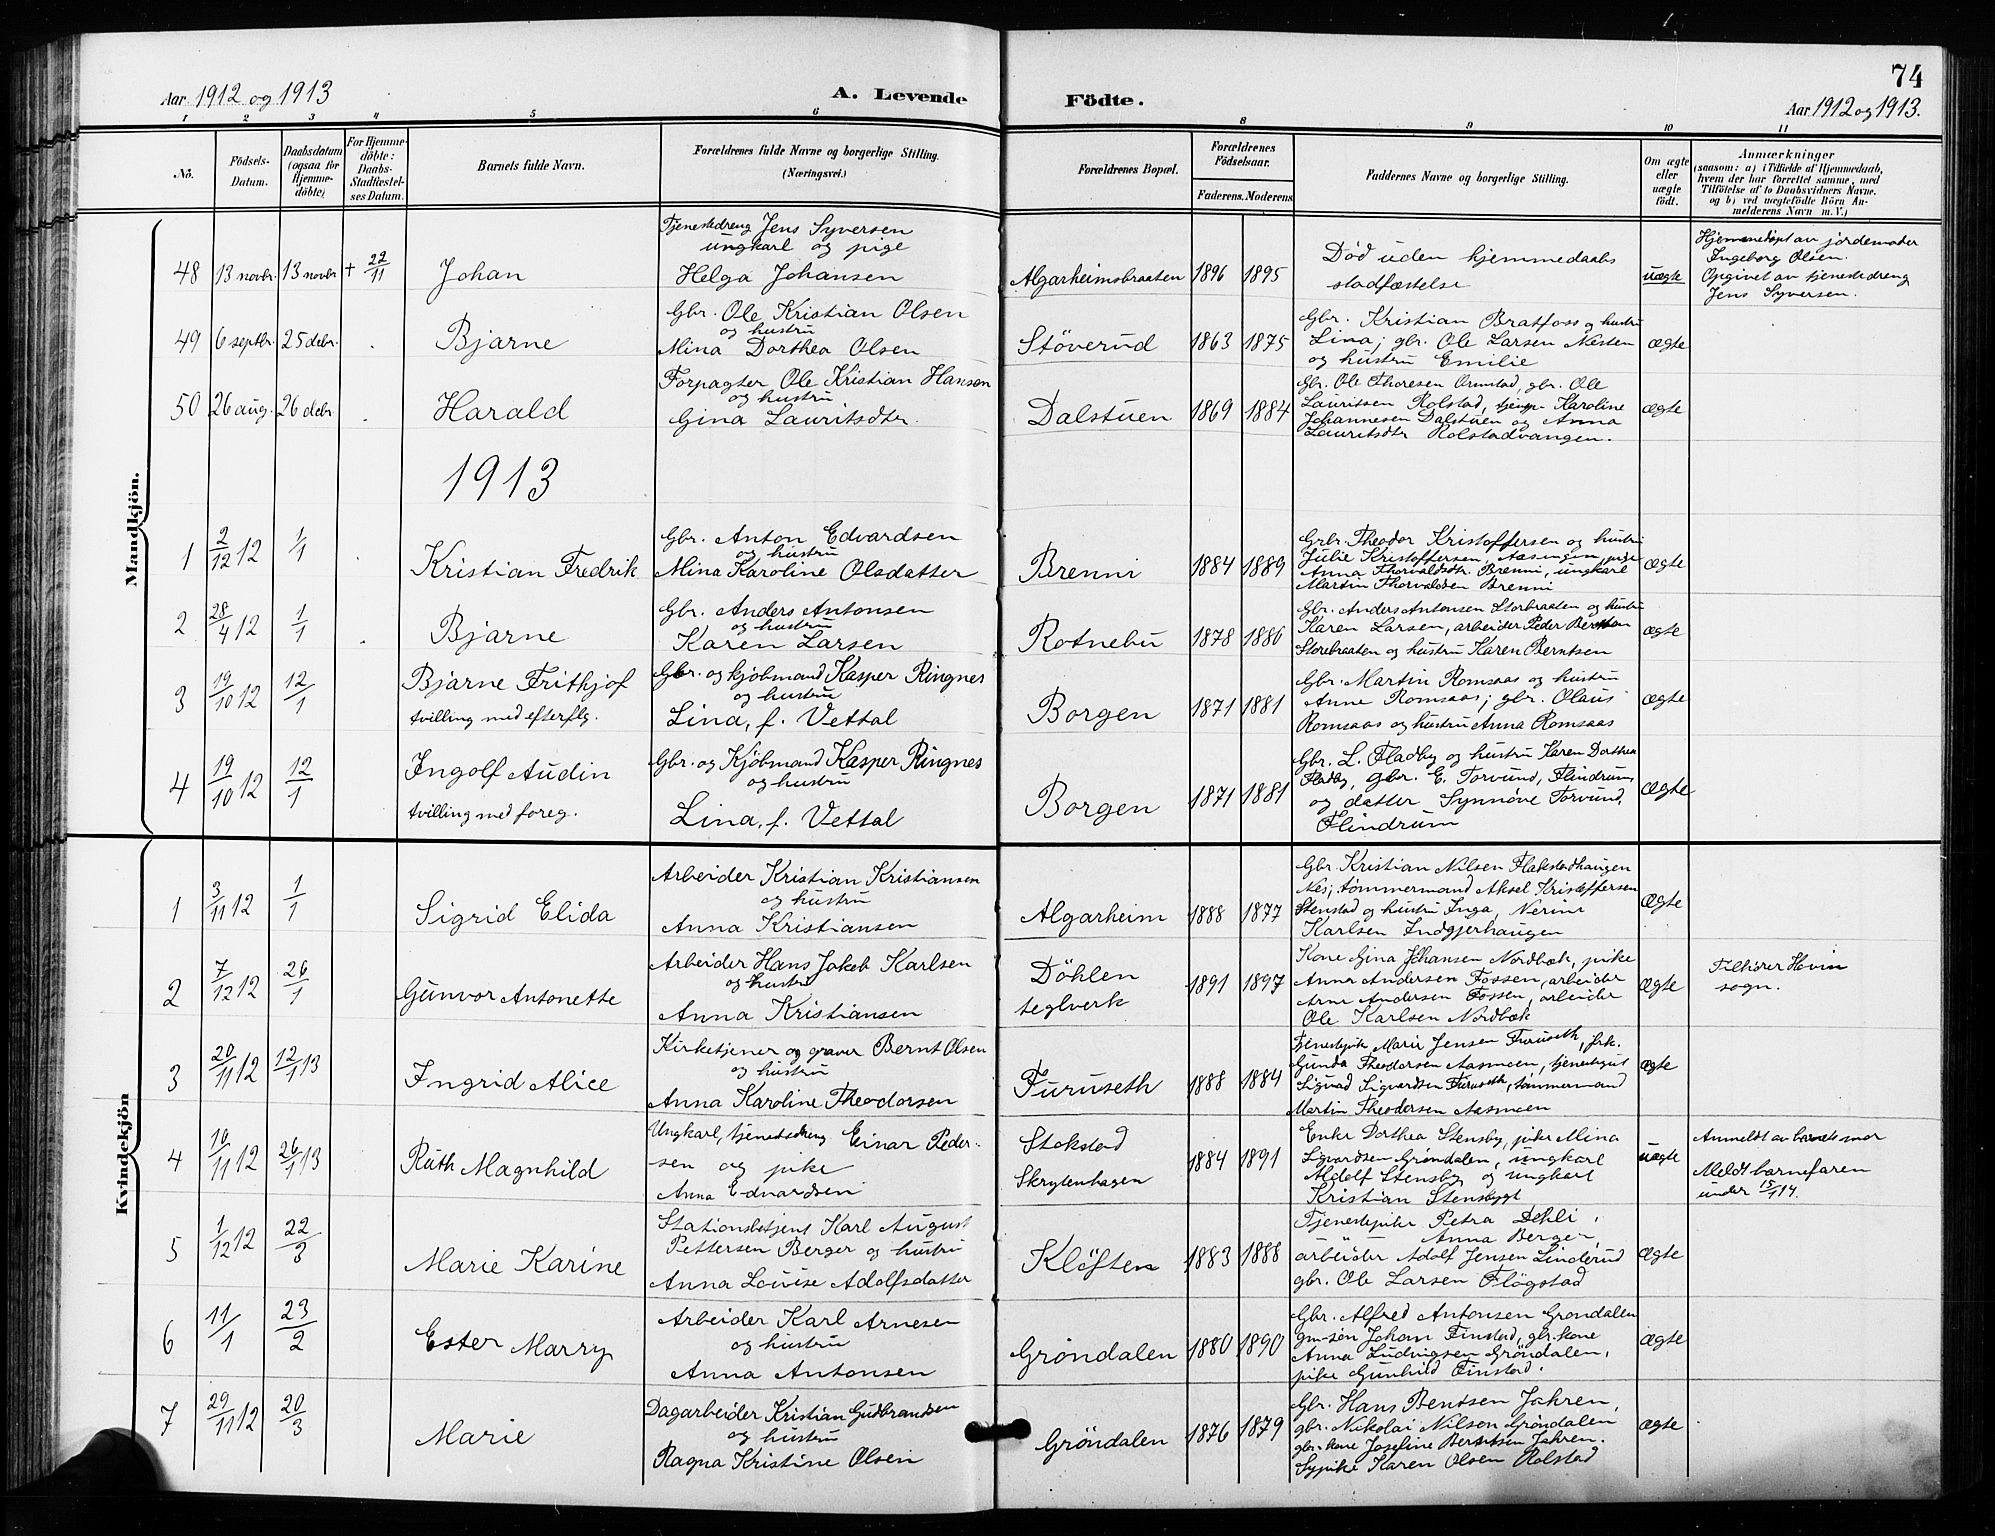 74
Aar 1912 og 1913
A. Levende
Födte.
Aar 1912 og 1913.
1 2 3 4 5 6 8 9 10 11
No.
Födsels-
Datum.
Daabsdatum
(ogsaa for
Hjemme-
döbte)
For Hjemme-
döbte:
Daabs-
Stadfæstel-
ses Datum.
Barnets fulde Navn.
Forældrenes fulde Navne og borgerlige Stilling.
(Næringsvei.)
Forældrenes Bopæl.
Forældrenes
Födselsaar.
Faderens. Moderens
Faddernes Navne og borgerlige Stilling.
Om ægte
eller
uægte
födt.
Anmærkninger
(saasom: a) i Tilfælde af Hjemmedaab,
hvem der har forrettet samme, med
Tilföielse af to Daabsvidners Navne.
og b) ved uægtefödte Börn An-
melderens Navn m. V.)
Mandkjön.
48 13 novbr. 13 novbr + 22/11 Johan
Tjenestedreng Jens Syversen
ungkarl og pige
Helga Johansen
Algarheimsbraaten 1896 1895
Död uden hjemmedaabs
stadfæstelse
uægte
Hjemmedöpt av jordemoder
Ingeborg Olsen.
Opgivet av tjenestedreng
Jens Syversen.
49 6 septbr. 25 debr. Bjarne
Gbr. Ole Kristian Olsen
og hustru
Mina Dorthea Olsen
Stöverud 1863 1875
Gbr. Kristian Bratfoss og hustru
Lina; gbr. Ole Larsen Nesten
og hustru Emilie
ægte
50 26 aug. 26 debr. Harald
Forpagter Ole Kristian Hansen
og hustru
Gina Lauritsdtr.
Dalstuen 1869 1884
Gbr. Ole Thoresen Ormstad, gbr. Ole
Lauritsen Rolstad, Karoline
Johannesen Dalstuen og Anna
Lauritsdtr Rolstadvangen.
ægte
1913
1 2/12 12 1/1 Kristian Fredrik
Gbr. Anton Edvardsen
og hustru
Mina Karoline Olsdatter
Brenni 1884 1889
Grbr. Theodor Kristoffersen og hustru
Julie Kristoffersen, Aasengen, pige
Anna Thorvaldsdtr. Brenni, ungkarl
Martin Thorvaldsen Brenni
ægte
2 28/4 12 1/1 Bjarne
Gbr. Anders Antonsen
og hustru
Karen Larsen
Rotnebu 1878 1886
Gbr. Anders Antonsen Storbraaten og hustru
Karen Larsen, arbeider Peder Berntsen
Storebraaten og hustru Karen Berntsen
ægte
3 19/10 12 12/1 Bjarne Frithjof
tvilling med efterflg.
Gbr. og kjöbmand Kasper Ringnes
og hustru
Lina, f. Vettal
Borgen 1871 1881
Gbr. Martin Romsaas og hustru
Anne Romsaas; gbr. Olaus
Romsaas og hustru Anna Romsaas
ægte
4 19/10 12 12/1 Ingolf Audin
tvilling med foreg.
Gbr. og Kjöbmand Kasper Ringnes
og hustru
Lina, f. Vettal
Borgen 1871 1881
Gbr. L. Fladby og hustru Karen Dorthea
Fladby, gbr. E. Torvund, Flindrum
og datter Synnöve Torvund,
Flindrum
ægte
Kvindekjön
1 3/11 12 1/1 Sigrid Elida
Arbeider Kristian Kristiansen
og hustru
Anna Kristiansen
Algarheim 1888 1877
Gbr. Kristian Nilsen Flakstadhaugen
Nes; tömmermand Aksel Kristoffersen
Stenstad og hustru Inga,
Karlsen Indgjerhaugen
ægte
2 7/12 12 26/1 Gunvor Antonette
Arbeider Hans Jakob Karlsen
og hustru
Anna Kristiansen
Döhlen
teglverk
1891 1897
Kone Gina Johansen Nordbæk, pike
Anna Andersen Fossen, arbeider
Arne Andersen Fossen, arbeider
Ole Karlsen Nordbæk
ægte
Tilhörer Hovin
sogn.
3 20/11 12 12/1 13 Ingrid Alice
Kirketjener og graver Bernt Olsen
og hustru
Anna Karoline Theodorsen
Furuseth 1888 1884
Tjenestepike Marie Jensen Furuseth, pik.
Gunda Theodorsen Aasmoen, tjenestegut
Sigvad Sigvardsen Furuseth, tömmermand
Martin Theodorsen Aasmoen
ægte
4 10/11 12 26/1 13 Ruth Magnhild
Ungkarl, tjenestedreng Einar Peder-
sen og pike
Anna Edvardsen
Stokstad
Skrytenhagen
1884 1891
Enke Dorthea Stensby, pike Mina
Sigvardsen Gröndalen, ungkarl
Adolf Stensby og ungkarl
Kristian Stensbygt
uægte
Anmeldt av barnets mor
Meldt barnefaren
under 15/1 14.
5 1/12 12 22/3 Marie Karine
Stationsbetjent Karl August
Pettersen Berger og hustru
Anna Louise Adolfsdatter
Klöften 1883 1888
Tjenestepike Petra Dehli,
" Anna Berger,
arbeider Adolf Jensen Linderud
gbr. Ole Larsen Flögstad
ægte
6 11/1 23/2 Ester Marry
Arbeider Karl Arnesen
og hustru
Anna Antonsen
Gröndalen 1880 1890
Gbr. Alfred Antonsen Gröndalen
gm-sön Johan Finstad, gbr.kone
Anna Ludvigsen Gröndalen,
pike Gunhild Finstad.
ægte
7 29/11 12 20/3 Marie
Dagarbeider Kristian Gudbrandsen
og hustru
Ragna Kristine Olsen
Gröndalen 1876 1879
Gbr. Hans Bentsen Jahren,
gbr. Nikolai Nilsen Gröndalen
gbr.kone Josefine Berntsen Jahren.
Sypike Karen Olsen Rolstad
ægte